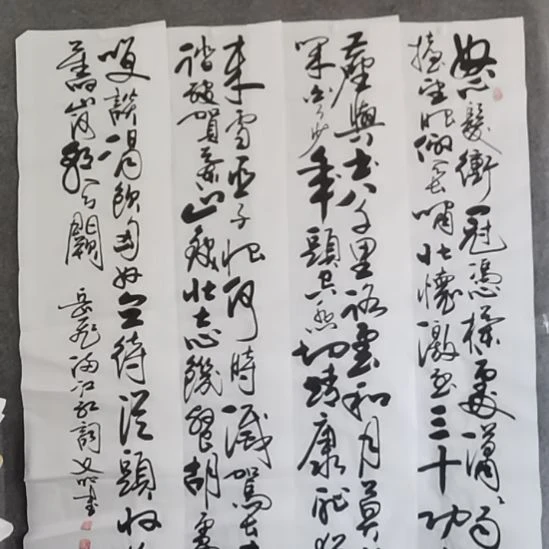 怒髮衝冠憑欄處瀟瀟雨
抬望眼仰天長嘯壯懷激烈三十功
塵與土八千里路雲和月莫
白少年頭空悲切靖康恥猶
未雪臣子恨何時滅駕長
踏破賀蘭山缺壯志飢餐胡虜
笑談渴飲匈奴血待從頭收
舊山河朝天闕
岳飛滿江紅詞